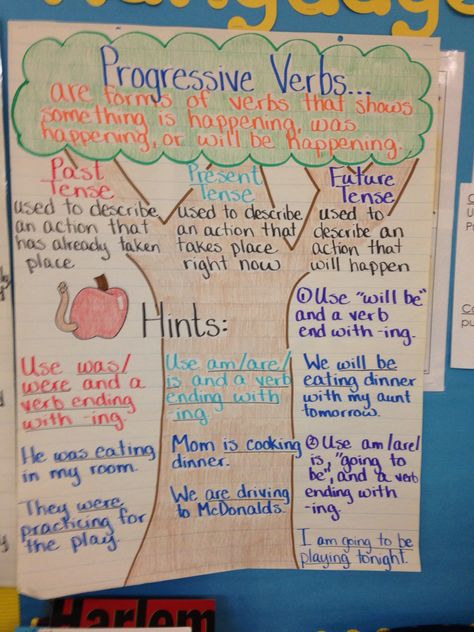 Language
Progressive Verbs...
are forms of verbs that shows
something is happening, was
happening, or will be happening.
Past
Tense
used to describe
an action that
has already taken
place
Present
Tense
used to describe
an action that
takes place
right now
Future
Tense
used to
describe an
action that
will happen
Hints:
Use was/
were and a
verb ending
with -ing.
He was eating
in my room.
They were
practicing for
the play.
Use am/are/
is and a verb
ending with
-ing.
Mom is cooking
dinner.
We are driving
to McDonalds.
① Use "will be"
and a verb
end with -ing.
We will be
eating dinner
with my aunt
tomorrow.
② Use am/are/
is, "going to
be", and a verb
ending with
-ing.
I am going to be
playing tonight.
Harlem